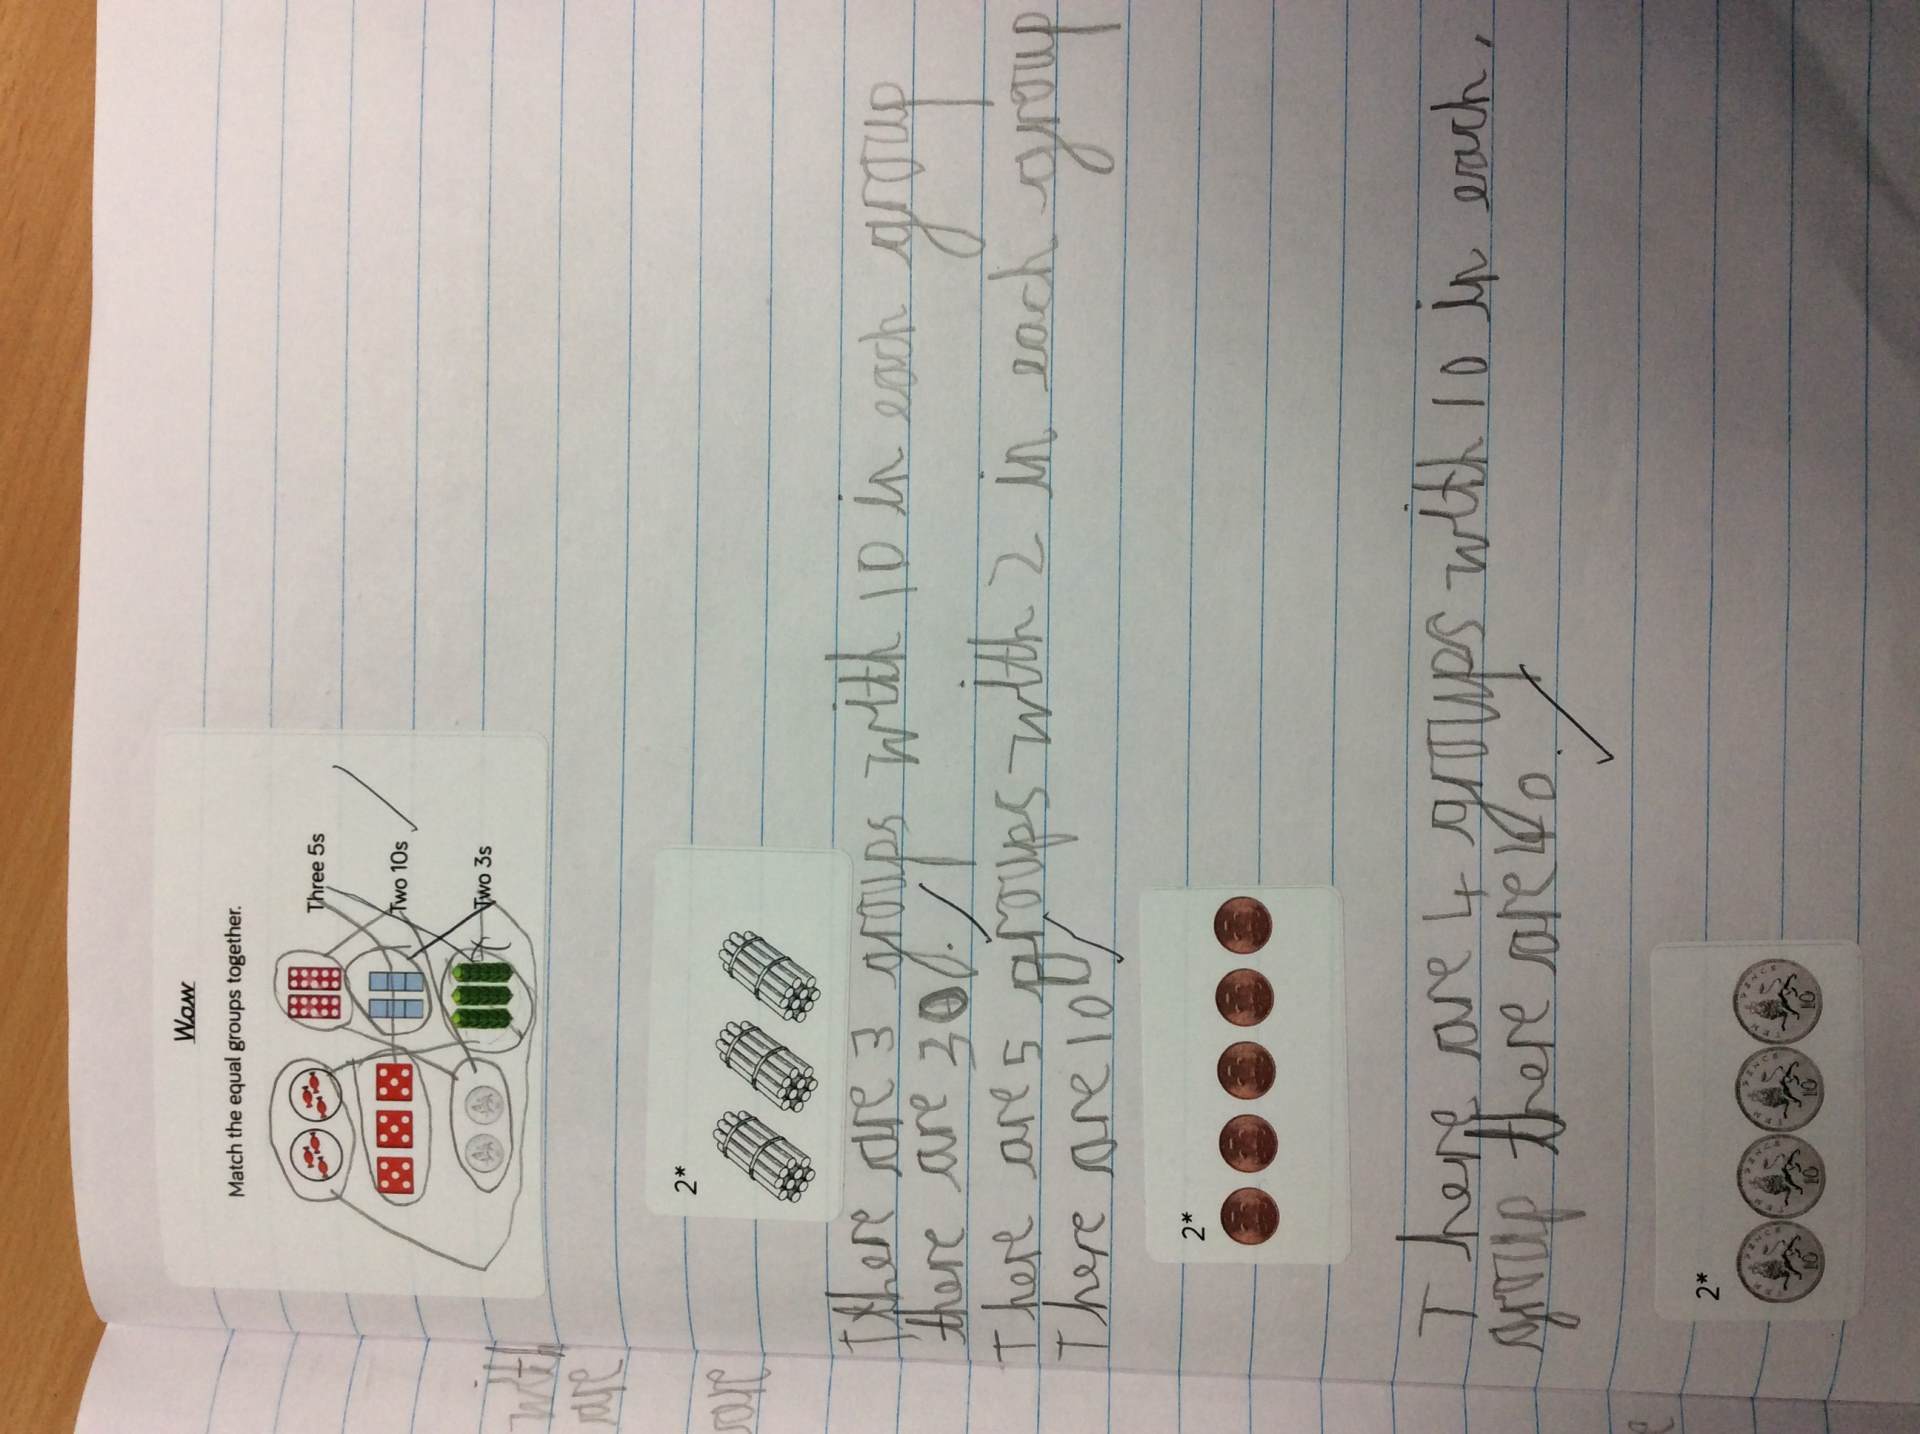 Waw
Match the equal groups together.
Three 5s
Two 10s
Two 3s
2*
There are 3 groups with 10 in each group
there are 30.
There are 5 groups with 2 in each group
There are 10
2*
There are 4 groups with 10 in each.
group there are 40.
2*
10 10 10 10
with
are
are